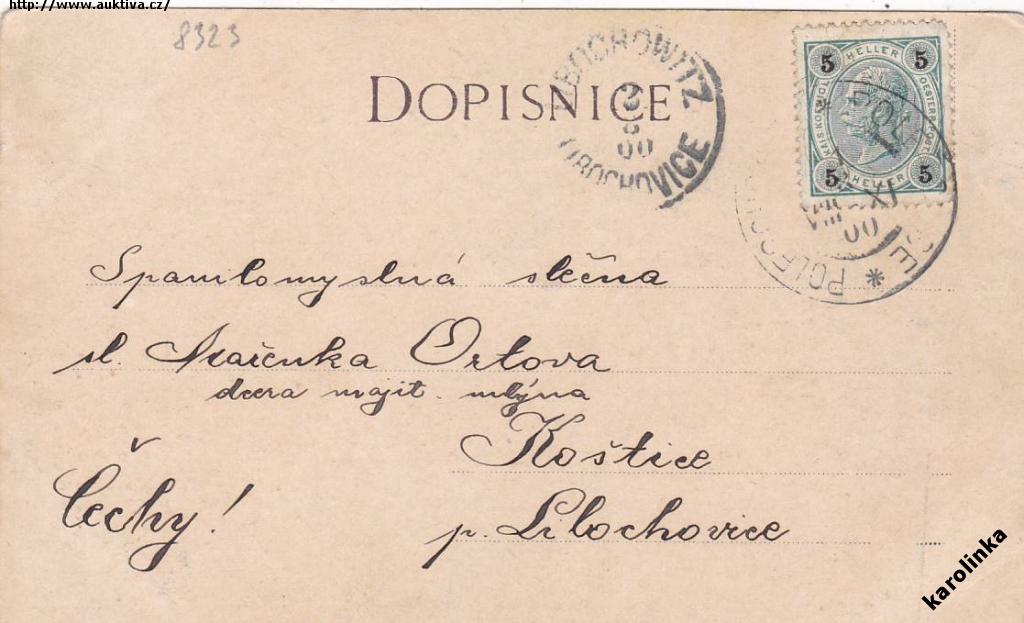 http://www.auktiva.cz/
8323
DOPISNICE
LIBOCHOWITZ
2
8
00
LIBOCHOVICE
5 HELLER 5
KAIS. KOENIGL.
OESTERR. POST.
5 HELLER 5
00
Spanilomyslná slečna
sl. Mařenka Ortova
dcera majit. mlýna
Koštice
Čechy!
p. Libochovice
karolinka